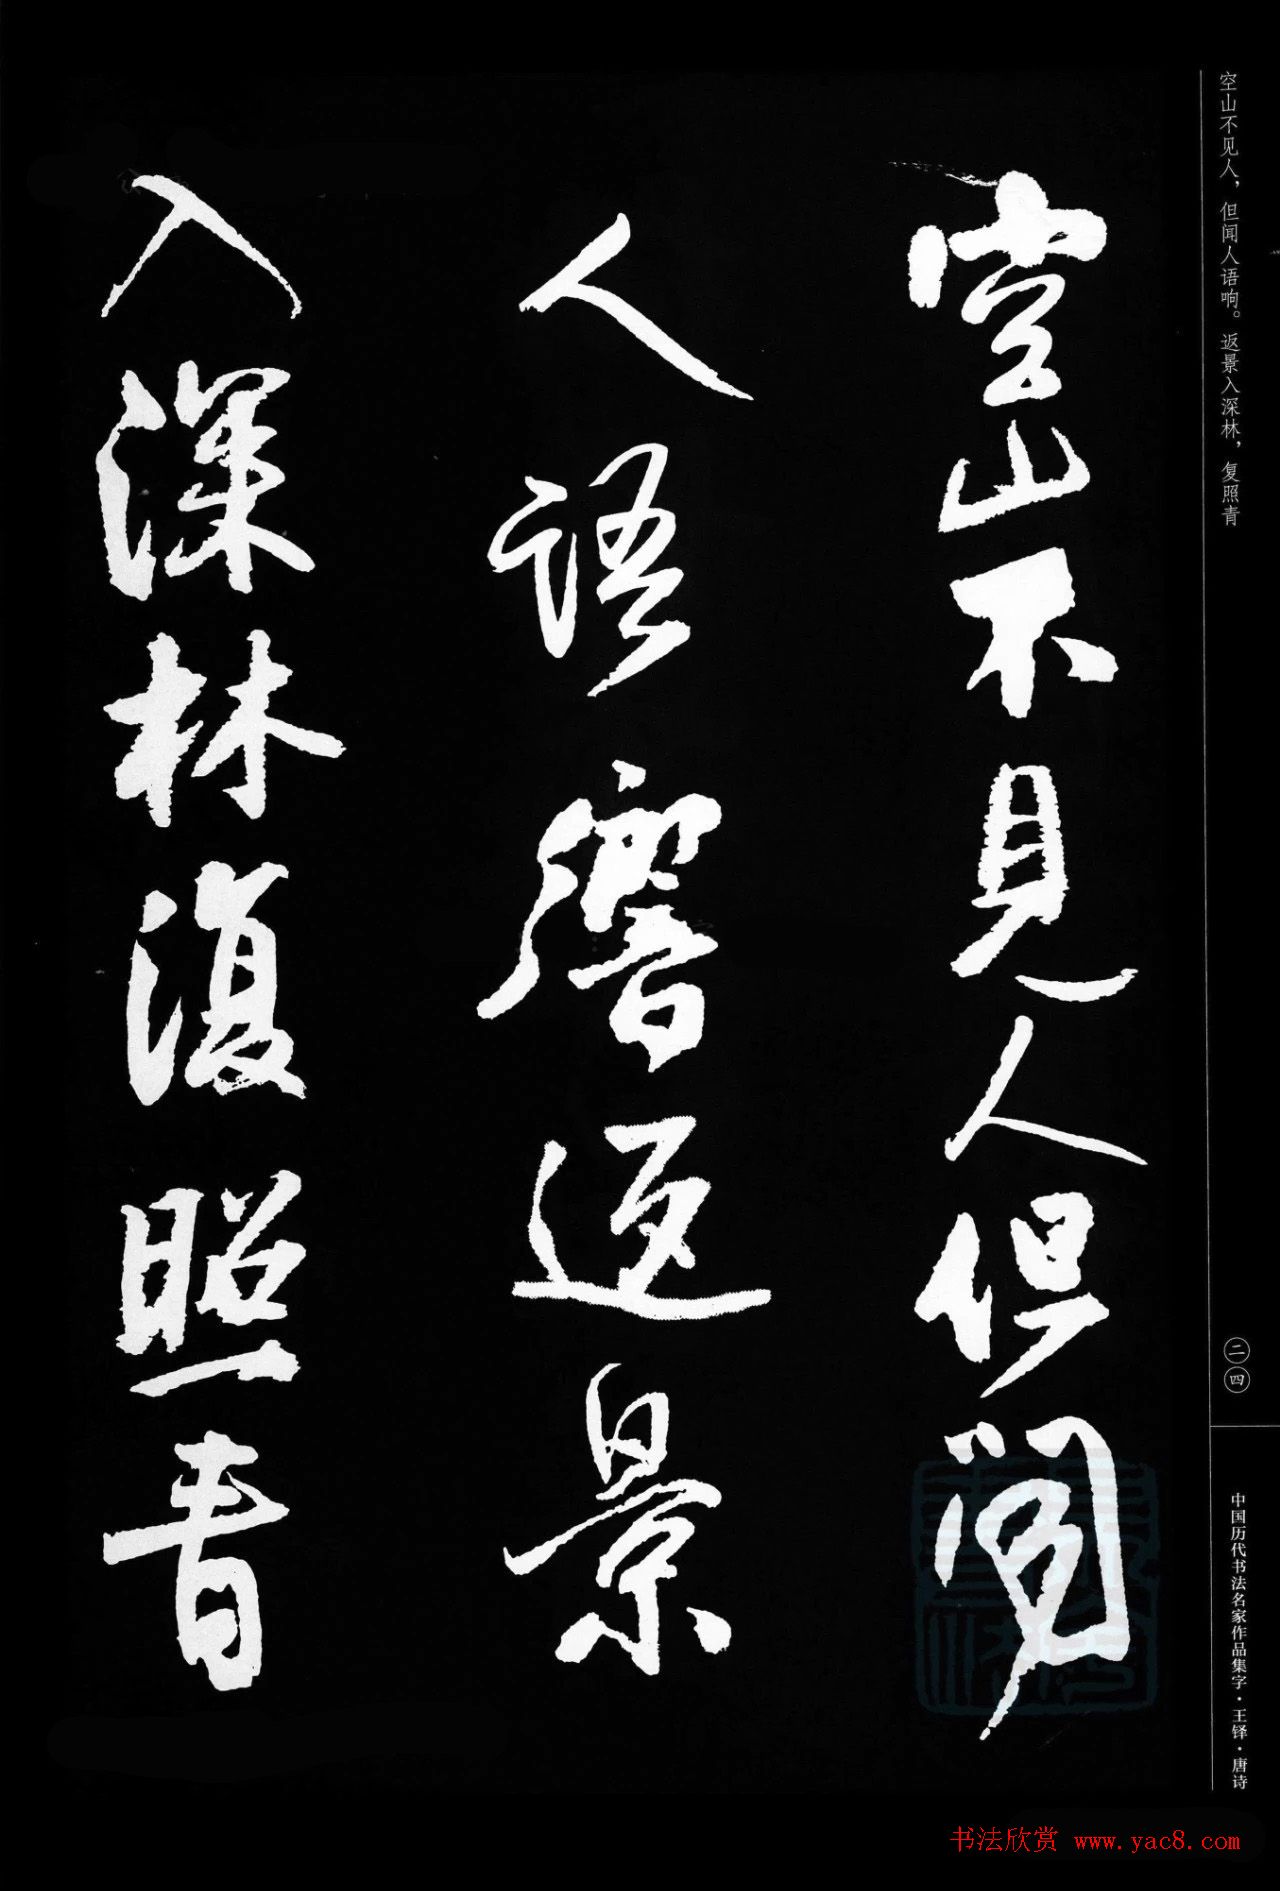 空山不见人，但闻人语响。返景入深林，复照青
空山不見人但聞
人語響返景
入深林復照青
二四
中国历代书法名家作品集字·王铎·唐诗
书法欣赏 www.yac8.com